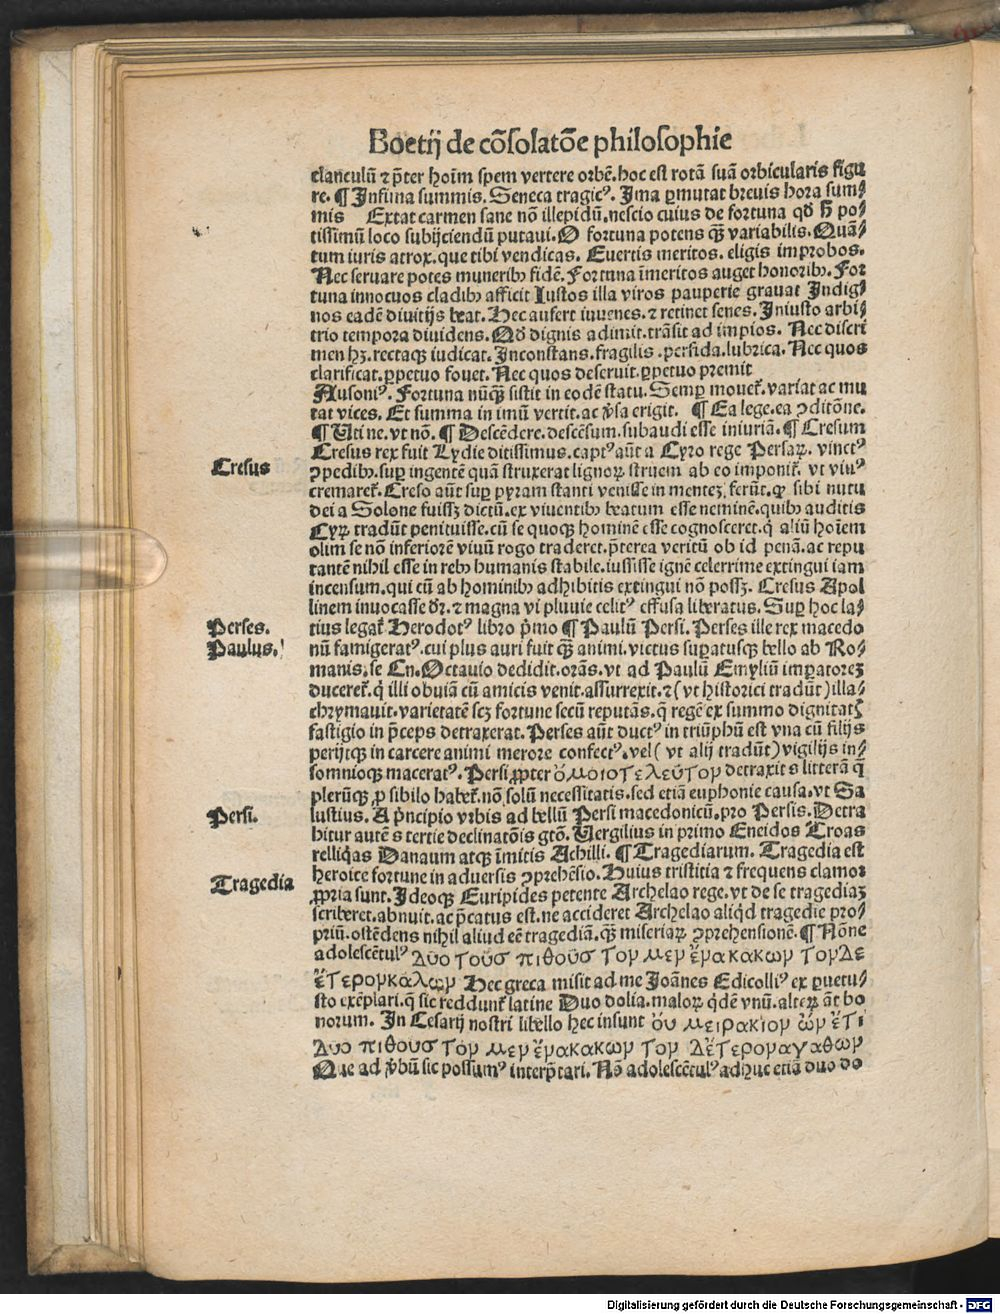 Boetij de cōsolatōe philosophie
clanculū ⁊ p̄ter hoīm spem vertere orbē.hoc est rotā suā orbicularis figu⸗
re. ¶ Infima summis. Seneca tragicꝰ. Ima ꝑmutat brevis hora sum⸗
mis Extat carmen sane nō illepidū.nescio cuius de fortuna qd̄ h̄ po⸗
tissimū loco subijciendū putaui.O fortuna potens q̄ꝫ variabilis.Quā⸗
tum iuris atrox.que tibi vendicas. Euertis meritos. eligis improbos.
Nec seruare potes muneribꝫ fidē.Fortuna īmeritos auget honoribꝫ.For
tuna innocuos cladibꝫ afficit Iustos illa viros pauperie grauat Indig⸗
nos eadē diuitijs beat. Hec aufert iuuenes. ⁊ retinet senes. Iniusto arbi⸗
trio tempora diuidens.Qd̄ dignis adimit.trāsit ad impios. Nec discri
men hꝫ.rectaqꝫ iudicat. Inconstans.fragilis.perfida.lubrica. Nec quos
clarificat.ꝑpetuo fouet. Nec quos deseruit.ꝑpetuo premit
Ausoniꝰ. Fortuna nūqꝫ sistit in eodē statu. Semꝑ mouet̄.variat ac mu
tat vices. Et summa in imū vertit.ac v̄sa erigit. ¶ Ea lege.ea ꝯditōne.
¶ Uti ne.vt nō. ¶ Descēdere.descēsum.subaudi esse iniuriā. ¶ Cresum
Cresus rex fuit Lydie ditissimus.captꝰ aūt a Cyro rege Persaꝝ. vinctꝰ
ꝯpedibꝫ.suꝑ ingentē quā struxerat lignoꝝ struem ab eo imponit̄. vt viuꝰ
cremaret̄.Creso aūt suꝑ pyram stanti venisse in menteꝫ ferūt.ꝙ sibi nutu
dei a Solone fuissꝫ dictū.ex viuentibꝫ beatum esse neminē.quibꝫ auditis
Cyꝝ tradūt penituisse.cū se quoqꝫ hominē esse cognosceret.q̇ aliū hoīem
olim se nō inferiorē viuū rogo traderet.p̄terea veritū ob id penā.ac repu
tantē nihil esse in rebꝫ humanis stabile.iussisse ignē celerrime extingui iam
incensum.qui cū ab hominibꝫ adhibitis extingui nō possꝫ. Cresus Apol
linem inuocasse dr̄. ⁊ magna vi pluuie celitꝰ effusa liberatus. Suꝑ hoc la⸗
tius legat̄ Herodotꝰ libro p̄mo ¶ Paulū Persi. Perses ille rex macedo
nū famigeratꝰ.cui plus auri fuit q̄ꝫ animi.victus suꝑatusqꝫ bello ab Ro⸗
manis.se Cn.Octauio dedidit.orās.vt ad Paulū Emyliū imꝑatoreꝫ
duceret̄.q̇ illi obuiā cū amicis venit.assurrexit.⁊ (vt historici tradūt) illa⸗
chrymauit.varietatē scꝫ fortune secū reputās.q̄ regē ex summo dignitatꝭ
fastigio in p̄ceps detraxerat. Perses aūt ductꝰ in triūphū est vna cū filijs
perijtqꝫ in carcere animi merore confectꝰ.vel (vt alij tradūt) vigilijs in⸗
somnioqꝫ maceratꝰ. Persi ꝓpter ὁμοιοτελεύτον detraxit s litterā q̄
plerūqꝫ ꝓ sibilo habet̄.nō solū necessitatis.sed etiā euphonie causa.vt Sa
lustius. A p̄ncipio vrbis ad bellū Persi macedonicū.pro Persis. Detra
hitur autē s tertie declinatōis gtō. Vergilius in primo Eneidos Troas
relliq̇as Danaum atqꝫ īmitis Achilli. ¶ Tragediarum. Tragedia est
heroice fortune in aduersis ꝯprehēsio. Huius tristitia ⁊ frequens clamor
ꝓpria sunt.Ideoqꝫ Euripides petente Archelao rege.vt de se tragediaꝫ
scriberet.abnuit.ac p̄catus est.ne accideret Archelao aliq̇d tragedie pro⸗
priū.ostēdens nihil aliud eē tragediā.q̄ꝫ miseriaꝝ ꝯprehensionē. ¶ Nōne
adolescētulꝰ δυο τοὺσ πιθουσ τον μεν ἕνα κακων τον δε
ἕτερον καλων Hec greca misit ad me Joānes Edicolliꝰ ex ꝑuetu⸗
sto exēplari.q̄ sic reddunt̄ latine Duo dolia.maloꝝ q̇dē vnū.alteꝝ aūt bo
norum. In Cesarij nostri libello hec insunt ὀυ μειρακιον ὢν ἔτι
δυο πιθουσ τὸν μεν ἕνα κακων τον δἕτερον αγαθων
Que ad v̄bū sic possumꝰ interp̄tari. Nō adolescētulꝰ adhuc etiā duo do
Cresus
Perses.
Paulus.
Persi.
Tragedia
Digitalisierung gefördert durch die Deutsche Forschungsgemeinschaft - DFG